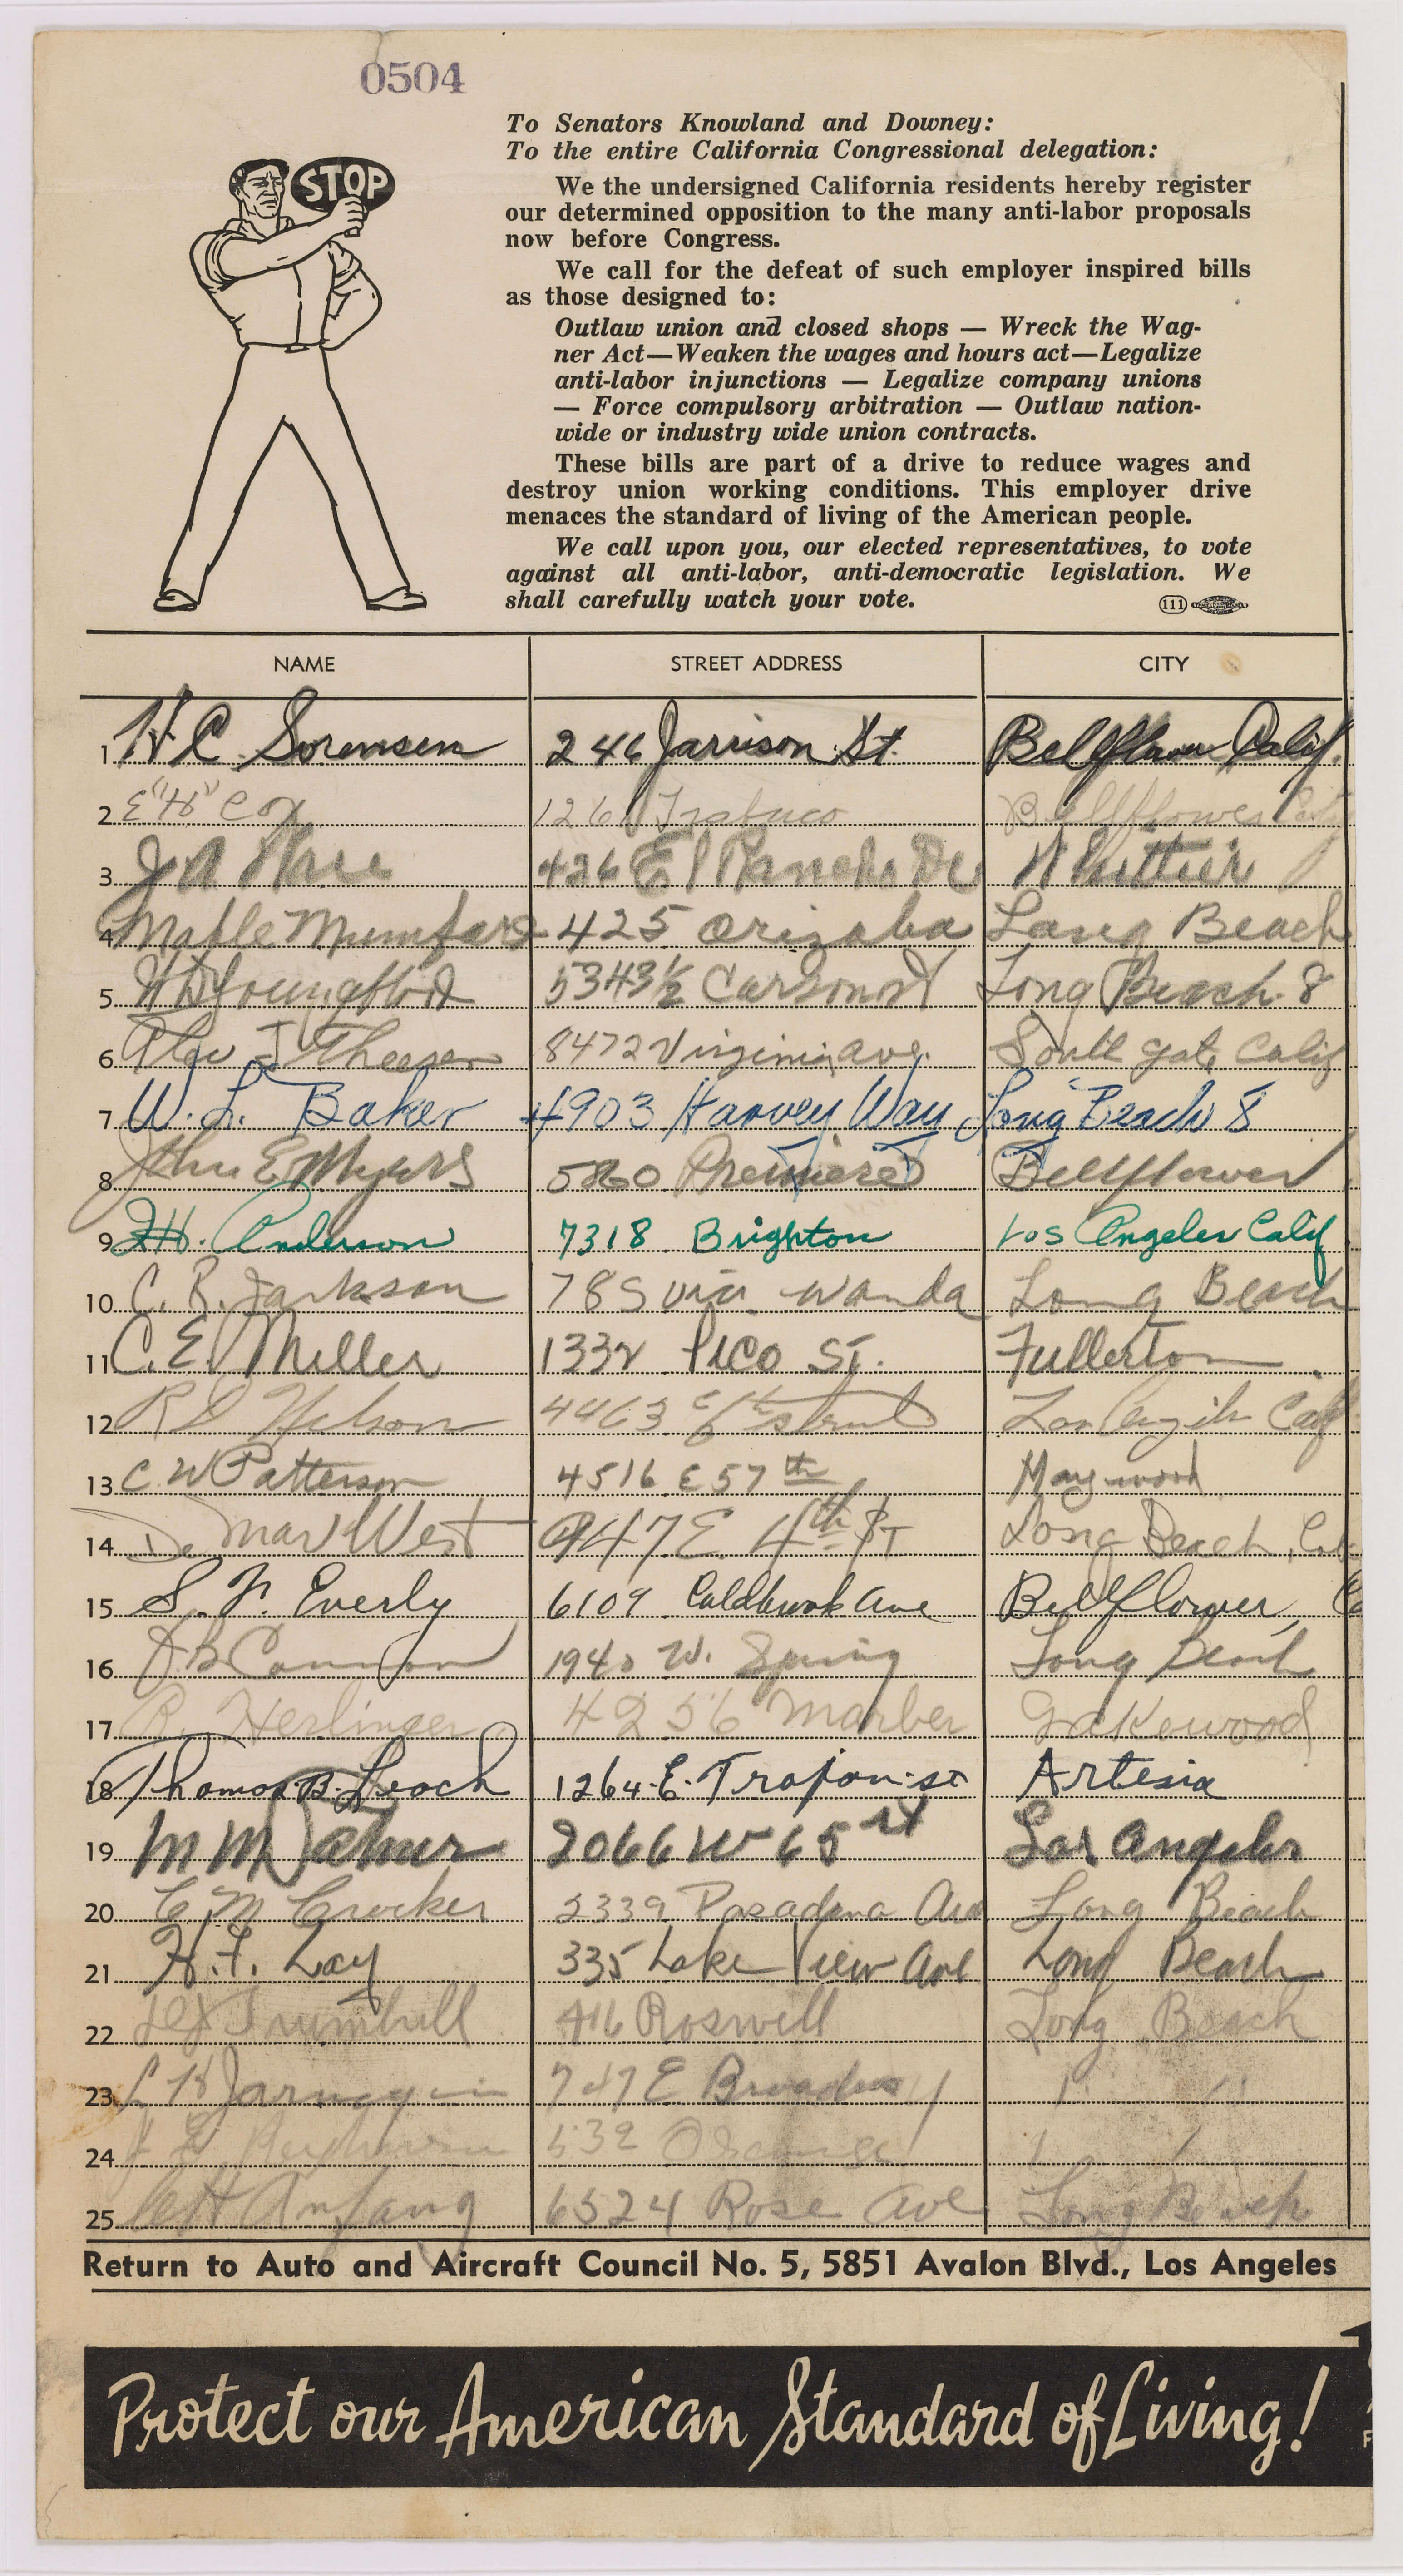 0504
STOP
To Senators Knowland and Downey:
To the entire California Congressional delegation:
We the undersigned California residents hereby register
our determined opposition to the many anti-labor proposals
now before Congress.
We call for the defeat of such employer inspired bills
as those designed to:
Outlaw union and closed shops — Wreck the Wag-
ner Act—Weaken the wages and hours act—Legalize
anti-labor injunctions — Legalize company unions
— Force compulsory arbitration — Outlaw nation-
wide or industry wide union contracts.
These bills are part of a drive to reduce wages and
destroy union working conditions. This employer drive
menaces the standard of living of the American people.
We call upon you, our elected representatives, to vote
against all anti-labor, anti-democratic legislation. We
shall carefully watch your vote.
111
NAME STREET ADDRESS CITY
1 H C Sorensen 246 Jarrison St. Bellflower Calif.
2 E "H" Cox 1261 Trabuco Bellflower
3 J A 426 El Rancho Dr Whittier
4 Mable Mumford 425 Orizaba Long Beach
5 5343½ Carson St Long Beach 8
6 J Theesen 8472 Virginia ave. South gate Calif
7 W. L. Baker 4903 Harvey Way Long Beach 8
8 John E Myers 5860 Premiere Bellflower
9 Anderson 7318 Brighton Los Angeles Calif
10 C. R. Jackson 785 via wanda Long Beach
11 C. E. Miller 1332 Pico St. Fullerton
12 R Nelson 4463 E 6th street Los Angeles Calf
13 C W Patterson 4516 E 57th Maywood
14 De Mar West 947 E. 4th St Long Beach, Cal
15 S. F. Everly 6109 Coldbrook ave Bellflower, Ca
16 Cannon 1940 W. Spring Long Beach
17 R. Herlinger 4256 Marber Lakewood
18 Thomas B. Leach 1264 E. Trafon st Artesia
19 M M Palmer 2066 W 65 st Los Angeles
20 C M Crocker 2339 Pasadena Ave Long Beach
21 H. F. Lay 335 Lake View Ave Long Beach
22 Trumbull 416 Roswell Long Beach
23 Jarnegin 747 E Broadway " "
24 532 Orange " "
25 Anfang 6524 Rose Ave Long Beach
Return to Auto and Aircraft Council No. 5, 5851 Avalon Blvd., Los Angeles
Protect our American Standard of Living!